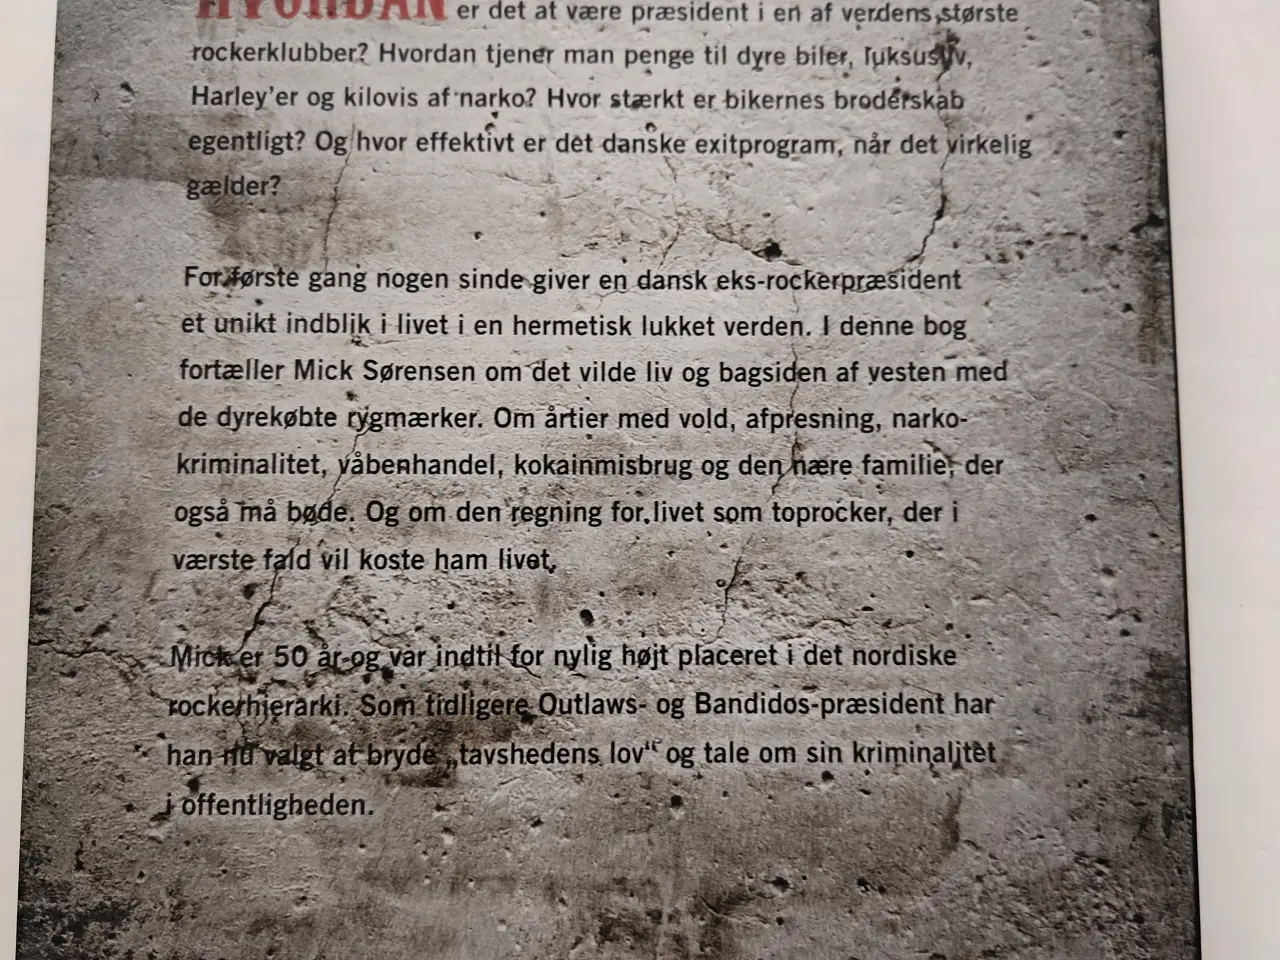 HVORDAN er det at være præsident i en af verdens største
rockerklubber? Hvordan tjener man penge til dyre biler, luksusliv,
Harley'er og kilovis af narko? Hvor stærkt er bikernes broderskab
egentligt? Og hvor effektivt er det danske exitprogram, når det virkelig
gælder?
For første gang nogen sinde giver en dansk eks-rockerpræsident
et unikt indblik i livet i en hermetisk lukket verden. I denne bog
fortæller Mick Sørensen om det vilde liv og bagsiden af vesten med
de dyrekøbte rygmærker. Om årtier med vold, afpresning, narko-
kriminalitet, våbenhandel, kokainmisbrug og den nære familie, der
også må bøde. Og om den regning for livet som toprocker, der i
værste fald vil koste ham livet.
Mick er 50 år og var indtil for nylig højt placeret i det nordiske
rockerhierarki. Som tidligere Outlaws- og Bandidos-præsident har
han nu valgt at bryde „tavshedens lov“ og tale om sin kriminalitet
i offentligheden.